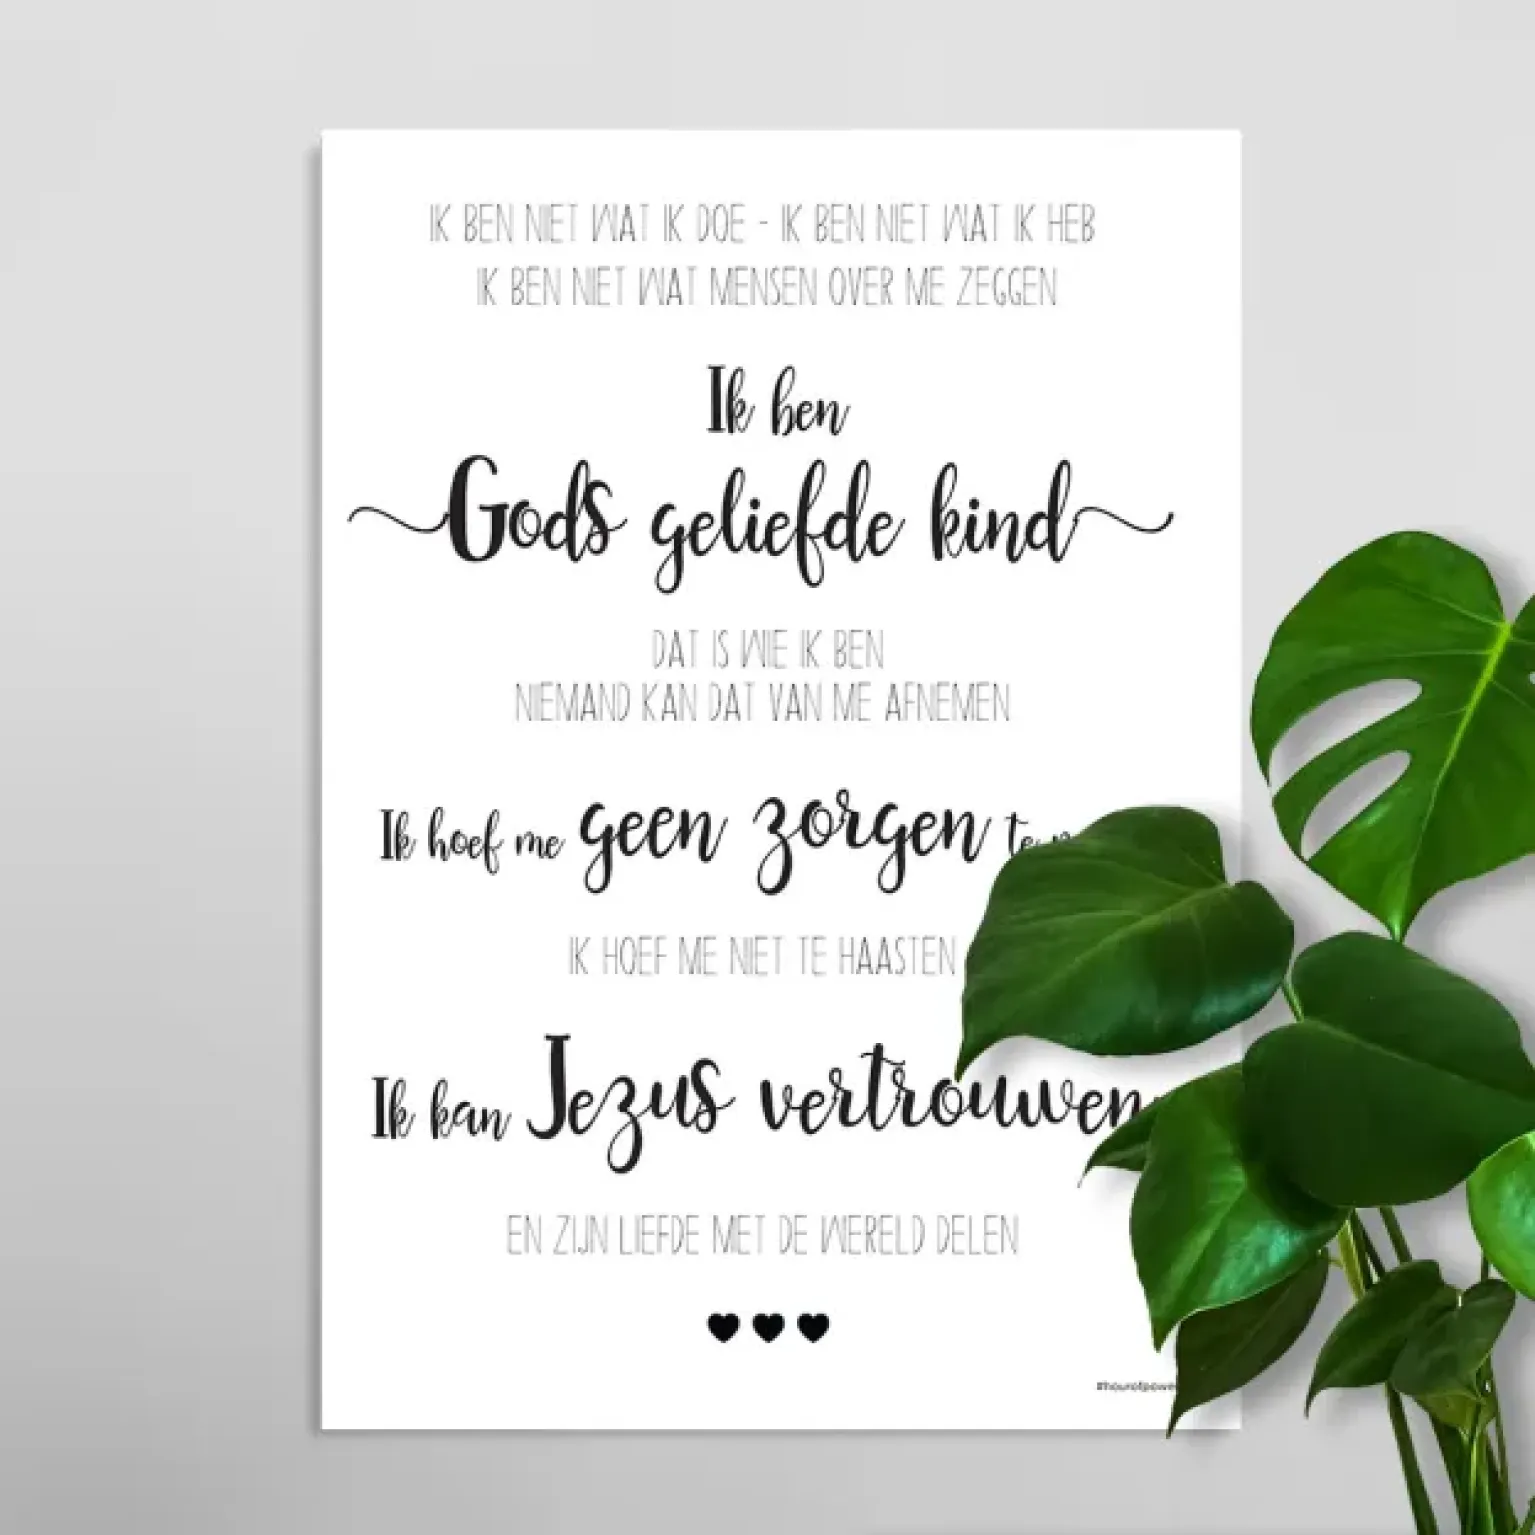 IK BEN NIET WAT IK DOE - IK BEN NIET WAT IK HEB
IK BEN NIET WAT MENSEN OVER ME ZEGGEN
Ik ben
Gods geliefde kind
DAT IS WIE IK BEN
NIEMAND KAN DAT VAN ME AFNEMEN
Ik hoef me geen zorgen te
IK HOEF ME NIET TE HAASTEN
Ik kan Jezus vertrouwen
EN ZIJN LIEFDE MET DE WERELD DELEN
#hourofpower